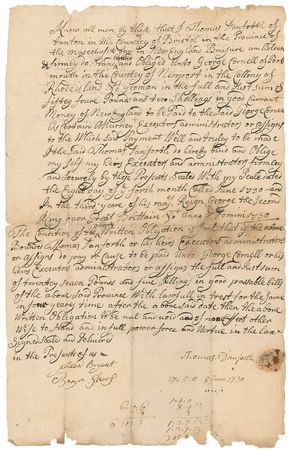 Know all men by these that I Thomas Danforth of
Tanton in the Country of Bristol in the Province of
the Massachusets Bay in New England am holden
firmly to stand and obliged Unto George Cornell of Ports
mouth in the Country of Newport in the Collony of
Rhode Island yeoman in the full and Just sum of
fifty four Pounds and two Shillings in good Currant
Money of New England to be Paid to the Said George Cornell
his Certain Atturney Executors administrators or assigns
to the Which Said Payment Well and truly to be made I
the Said Thomas Danforth do hereby bind and oblige
my Self my heirs Executors and administrators firmly
and Securely by these Presents Seald With my Seale date
the Eight day of fourth month Called June 1730 and
In the third year of his maj Reign George the Second
King over Great Britain &c anno Domini 1730
The Condition of the Written Obligation is Such that if the above
Bounded Thomas Danforth or his heirs Executors administrators
or assigns do pay or Cause to be paid Unto George Cornell or his
heirs Executors administrators or assigns the full and Just sum
of twenty Seven Pounds and five Shilling in good passable bills
of the above Said Province With lawfull in trest for the Same
in years time after the above Said date then the above
Written Obligation to be null and void and of none Efect other
Wise to Stand and in full power force and Vertue in the Law
Signed Sealed and Deliverd
in the Presents of us
Thomas Danforth
8 June 1730